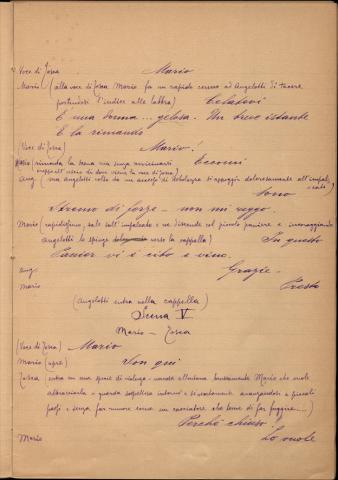 Voce di Tosca Mario
Mario (alla voce di Tosca Mario fa un rapido cenno ad Angelotti di tacere
portandosi l'indice alle labbra) Celatevi
È una donna... gelosa. Un breve istante
E la rimando
(Voce di Tosca) Mario!
Mario Eccomi
Ang. (ma Angelotti colto da un accesso di debolezza si appoggia dolorosamente all'impal-
cato) Sono
Stremo di forze - non mi reggo.
Mario (rapidissimo, sale sull'impalcato e ne discende col piccolo paniere e incoraggiando
Angelotti lo spinge verso la cappella) In questo
Panier vi è cibo e vino.
Ang. Grazie.
Mario Presto
(Angelotti entra nella cappella)
Scena V.
Mario - Tosca
(Voce di Tosca) Mario
Mario (apre) Son qui
Tosca (entra con una specie di violenza - guarda Mario che vuole
abbracciarla - guarda sospettosa intorno a piccoli
passi e senza far rumore come un cacciatore che teme di far fuggire...)
Perchè chiuso?
Mario Lo vuole